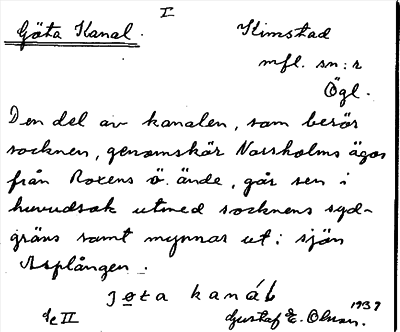 I
Göta Kanal.
Kimstad
mfl. sn:r
Ögl.
Den del av kanalen, som berör
socknen, genomskär Norsholms ägor
från Roxens ö. ände, går sen i
huvudsak utmed socknens syd-
gräns samt mynnar ut i sjön
Asplången.
jota kanáb
se II
1937
Gustaf E. Olsson.